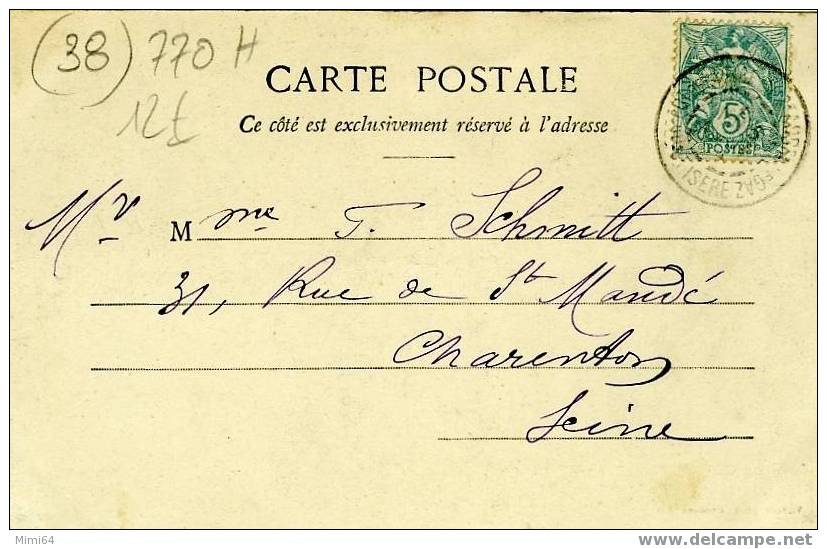 (38) 770 H
12£
CARTE POSTALE
Ce côté est exclusivement réservé à l'adresse
5
POSTES
ISÈRE
Mr Mme F. Schmitt
31, Rue de St Mandé
Charenton
Seine
Mimi64
delcampe.net